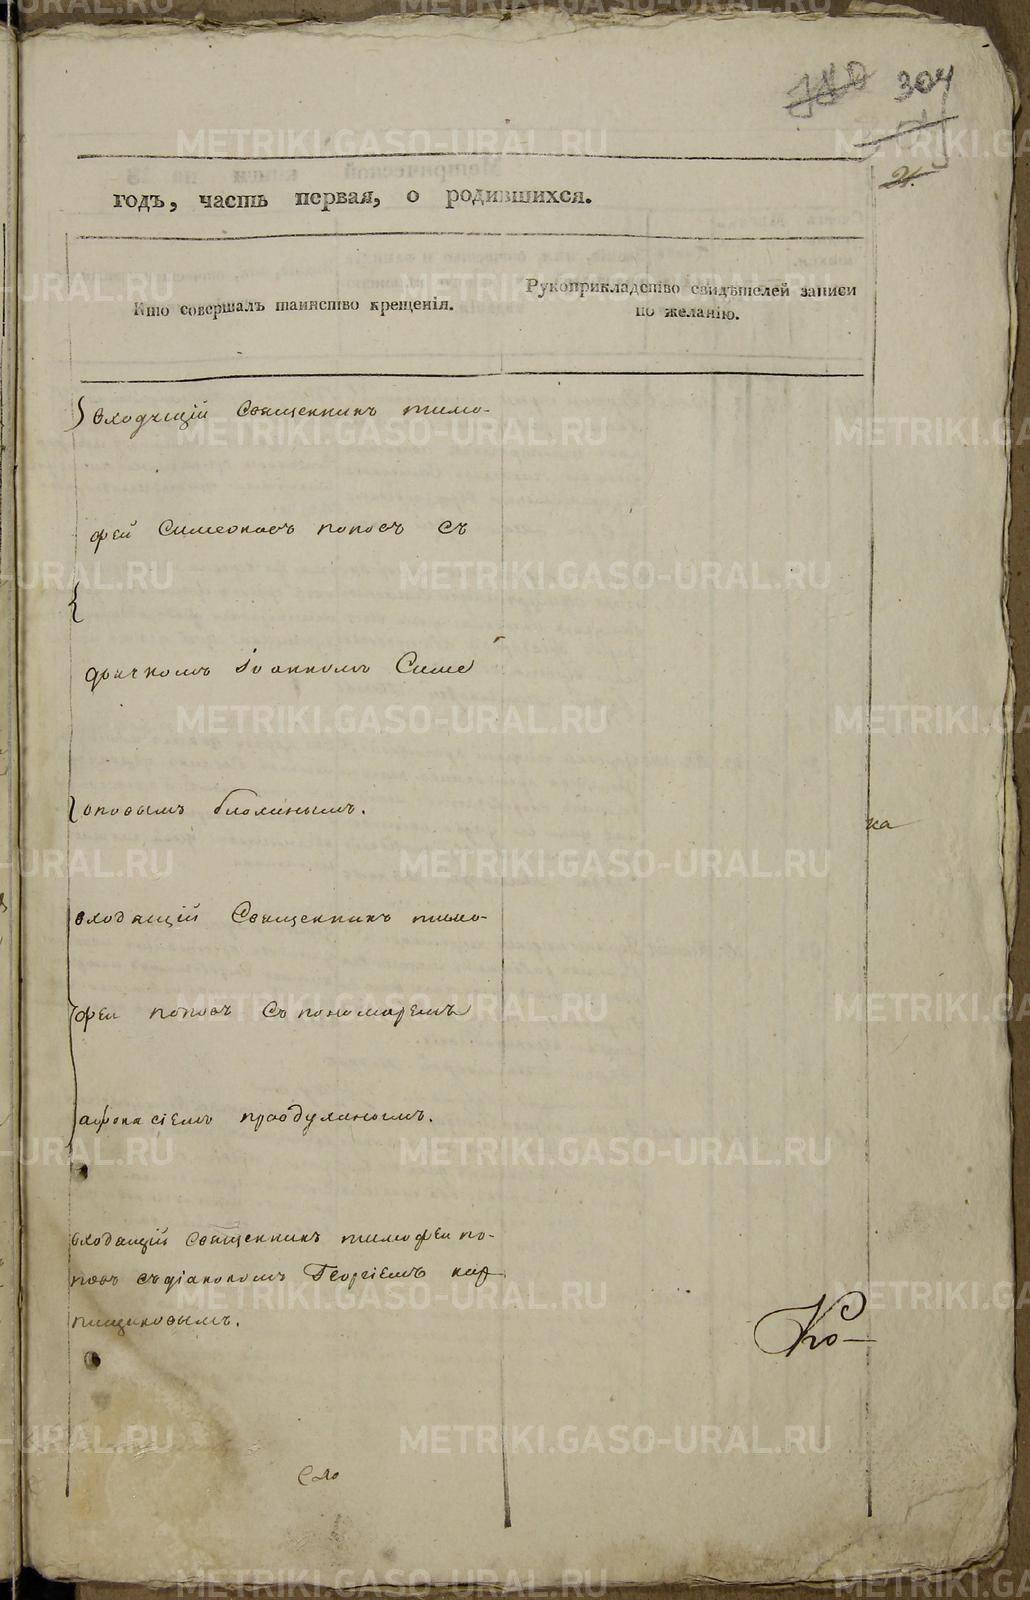 304
годъ, часть первая, о родившихся.
Кто совершалъ таинство крещенія.
Рукоприкладство свидѣтелей записи
по желанію.
входящій Священникъ тимо-
фей Симеоновъ поповъ съ
дьячкомъ Іоанномъ Симе
оновымъ
ка
входящій Священникъ тимо-
феи поповъ съ пономаремъ
афонасіемъ
входящій Священникъ тимофеи по-
повъ съ діакономъ Георгіемъ кар
пинсковымъ.
Ко-
METRIKI.GASO-URAL.RU